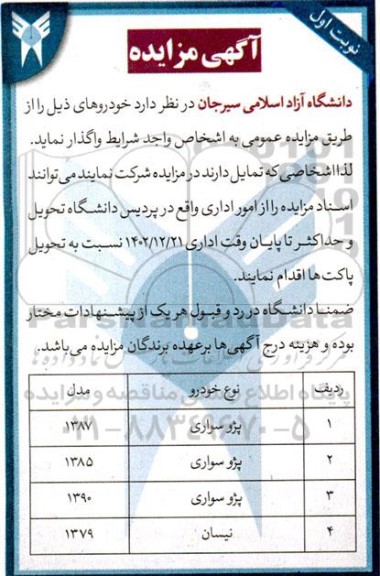 نوبت اول
آگهی مزایده
دانشگاه آزاد اسلامی سیرجان در نظر دارد خودروهای ذیل را از
طریق مزایده عمومی به اشخاص واجد شرایط واگذار نماید.
لذا اشخاصی که تمایل دارند در مزایده شرکت نمایند می‌توانند
اسناد مزایده را از امور اداری واقع در پردیس دانشگاه تحویل
و حداکثر تا پایان وقت اداری ۱۴۰۲/۱۲/۲۱ نسبت به تحویل
پاکت‌ها اقدام نمایند.
ضمنا دانشگاه در رد و قبول هر یک از پیشنهادات مختار
بوده و هزینه درج آگهی‌ها برعهده برندگان مزایده می‌باشد.
ردیف نوع خودرو مدل
۱ پژو سواری ۱۳۸۷
۲ پژو سواری ۱۳۸۵
۳ پژو سواری ۱۳۹۰
۴ نیسان ۱۳۷۹
ParsNamadData
پایگاه اطلاع رسانی مناقصه و مزایده
۰۲۱-۸۸۳۴۹۶۷۰-۵